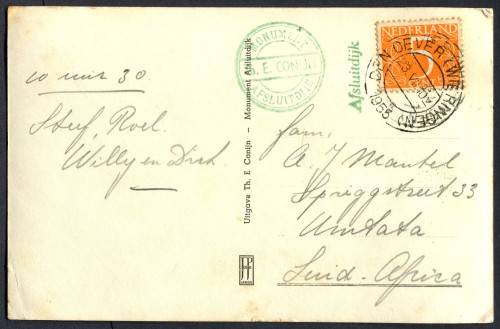 10 uur 30.
Steef, Roel.
Willy en Dick
Uitgave Th. E Conijn - Monument Afsluitdijk
MONUMENT
E. CONIJN
AFSLUITDIJK
Afsluitdijk
NEDERLAND
DEN OEVER (WIERINGEN)
1955
Fam.
A. J Mantel
Spriggstreet 33
Umtata
Suid-Africa